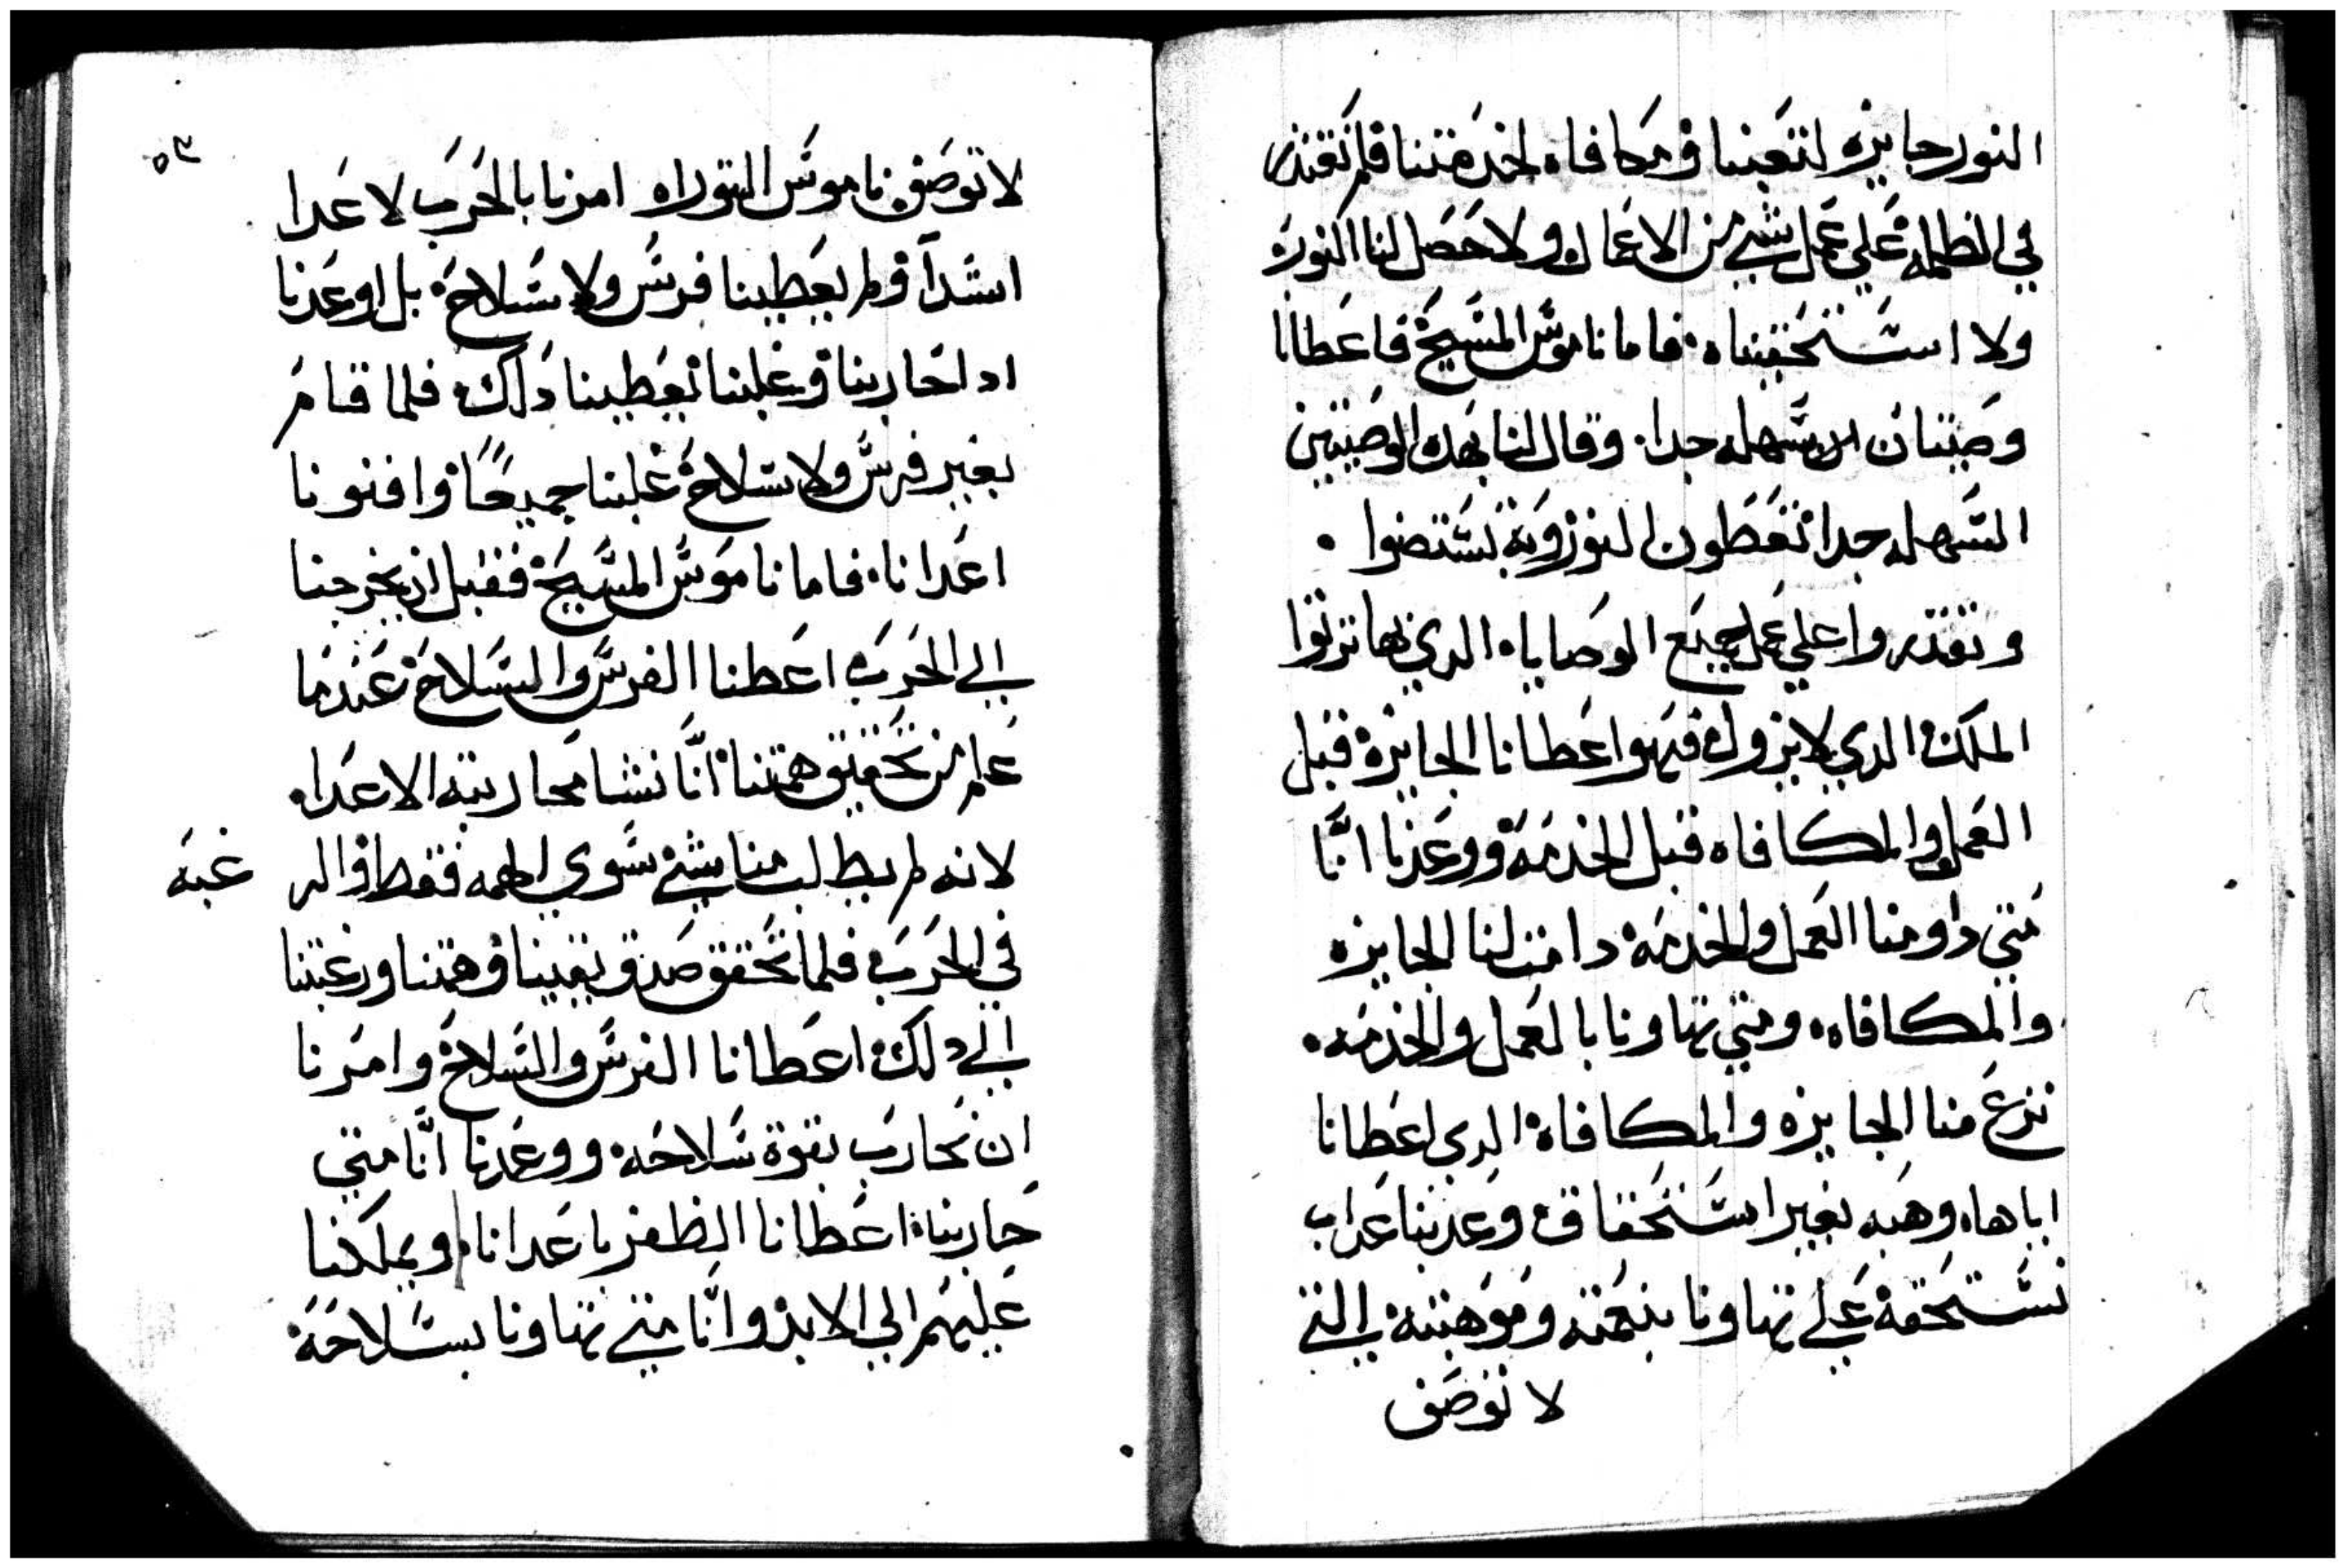 النور جايزه لتعبنا ومكافاه لخدمتنا فلم نقتدر
في الظلمه علي عمل شي من الاعمال ولا حصل لنا النور
ولا استحقيناه فاما ناموس المسيح فاعطانا
وصيتان سهله جدا وقال لنا بهده الوصيتين
السهله جدا تعطون النور وبه تستضوا
وتقتدروا علي عمل جميع الوصاياه الدي بها ترتوا
الملك الدي لا يزول فهو اعطانا الجايزه قبل
العمل والمكافاه قبل الخدمه ووعدنا انّا
متي داومنا العمل والخدمه دامت لنا الجايزه
والمكافاه ومتي تهاونا بالعمل والخدمه
نزع منا الجايزه والمكافاه الدي اعطانا
اياها وهبه بغير استحقاق وعدبنا عداب
نستحقه علي تهاونا بنعمته وموهبته التي
لا توصف
٥٣
لا توصف ناموس التوراه امرنا بالحرب لاعدا
اشدآ ولم يعطينا فرس ولا سلاح بل اوعدنا
ادا حاربنا وغلبنا يعطينا دلك فلما قام
بغير فرس ولا سلاح غلبنا جميعًا وافنونا
اعدانا فاما ناموس المسيح فقبل ان يخرجنا
الي الحرب اعطنا الفرس والسلاح عندما
علم من تحقيق همتنا انّا نشا محاربة الاعدا
لانه لم يطلب منا شي سوي الهمه فقط والر غبه
في الحرب فلما تحقق صدق يقيننا وهمتنا ورغبتنا
الي دلك اعطانا الفرس والسلاح وامرنا
ان نحارب بقوة سلاحه ووعدنا انّا متي
حاربنا اعطانا الظفر باعدانا ويملكنا
عليهم الي الابد وانّا متي تهاونا بسلاحه